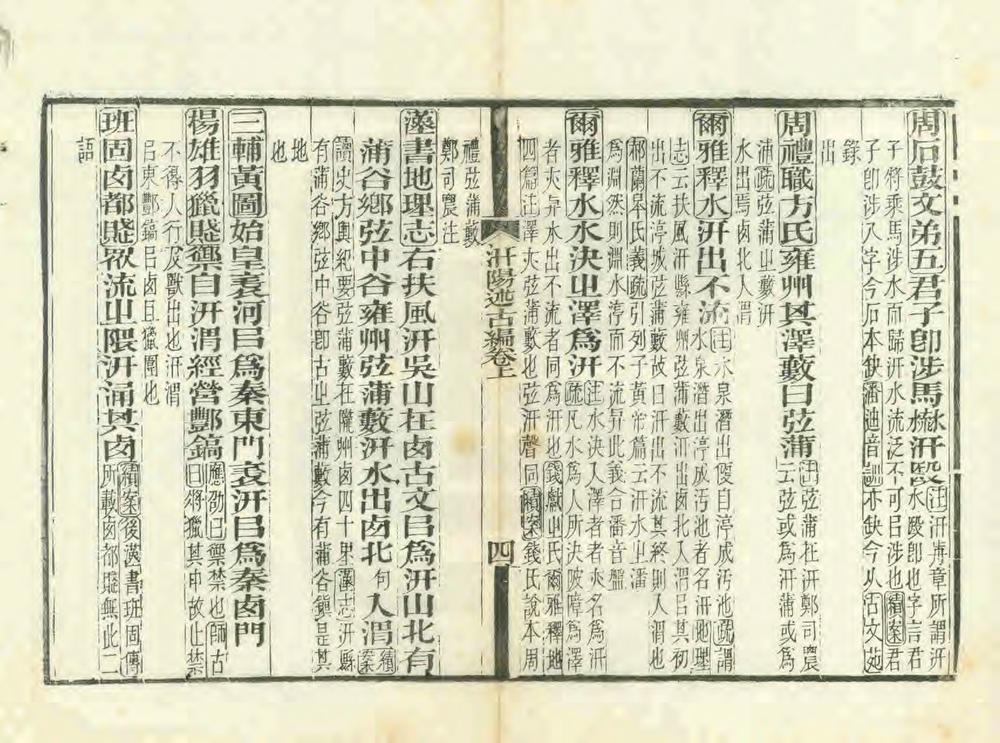 周石鼓文弟五君子卽涉馬㵗汧殹注汧博章所謂汧
水殹卽也字言君
子將乘馬涉水而歸汧水流泛不可㠯涉也續案君
子卽涉入字今石本缺潘迪音訓亦缺今从古文苑
錄
出
周禮職方氏雍州其澤藪曰弦蒲注弦蒲在汧鄭司農
云弦或爲汧蒲或爲
浦疏弦蒲㞢藪汧
水出焉鹵北入渭
爾雅釋水汧出不流注水泉潛出便自渟成汚池疏謂
水泉潛出渟成汚池者名汧地理
志云扶風汧縣雍州弦蒲藪汧出鹵北入渭㠯其初
出不流渟城弦蒲藪故曰汧出不流其終則入渭也
郝蘭皋氏義疏引列子黃帝篇云汧水㞢潘
爲淵然則淵水渟而不流與此義合潘音盤
爾雅釋水水決㞢澤爲汧注水決入澤者者亦名爲汧
疏凡水爲人所決陂障爲澤
者亦與水出不流者同爲汧也錢獻㞢氏爾雅釋地
四篇注澤亦弦蒲藪也弦汧聲同續案錢氏說本周
汧陽述古編卷上
四
禮弦蒲藪
鄭司農注
漢書地理志右扶風汧吳山在鹵古文㠯爲汧山北有
蒲谷鄉弦中谷雍州弦蒲藪汧水出鹵北句入渭續案
讀史方輿紀要弦蒲藪在隴州鹵四十里漢志汧縣
有蒲谷鄉弦中谷卽古㞢弦蒲藪今有蒲谷鎮是其
地
也
三輔黃圖始皇表河㠯爲秦東門表汧㠯爲秦鹵門
楊雄羽獵賦禦自汧渭經營酆鎬應劭曰禦禁也師古
曰將獵其中故止禁
不得人行及獸出也汧渭
㠯東酆鎬㠯鹵且獵圍也
班固鹵都賦眾流㞢隈汧涌其鹵續案後漢書班固傳
所載鹵都賦無此二
語